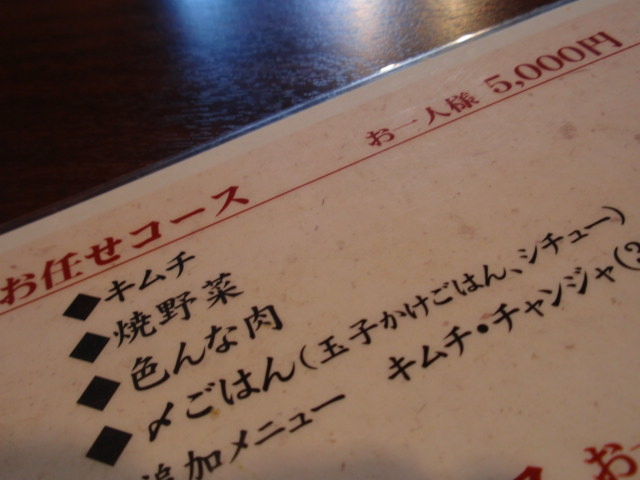 お任せコース お一人様 5,000円
◆キムチ
◆焼野菜
◆色んな肉
◆〆ごはん(玉子かけごはん、シチュー)
追加メニュー キムチ・チャンジャ(3
お一